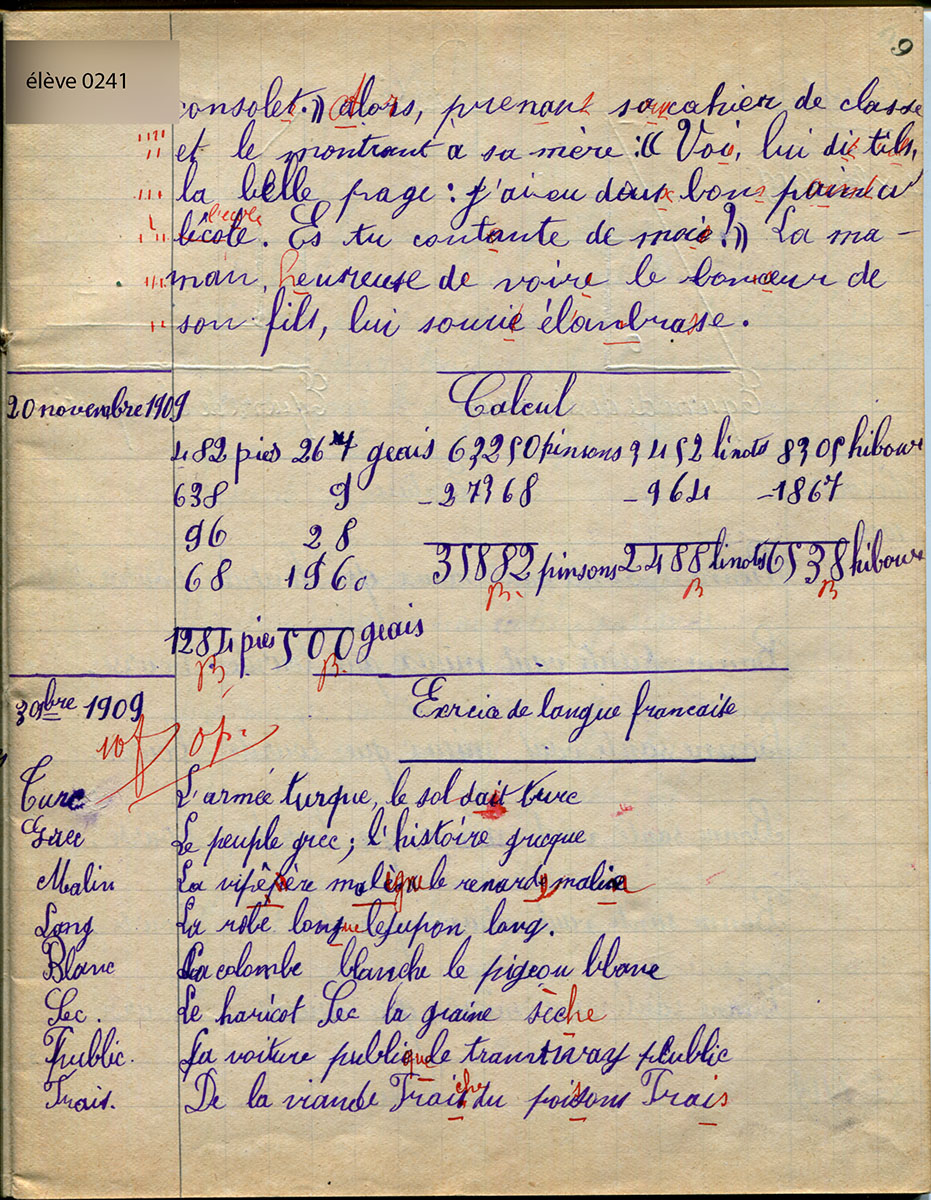 9
élève 0241
consolet.» alors, prenant son cahier de classe
et le montrant a sa mère : « Voi, lui dit til,
la belle page : j'ai eu deux bons
l'école
lécole. Es tu contante de moi ?» La ma-
man, heureuse de voire le bonoeur de
son fils, lui sourie élanbrase.
20 novembre 1909 Calcul
482 pies 267 geais 63250 pinsons 3452 linots 8305 hiboux
638 9 -27368 -964 -1867
96 28
68 196 35882 pinsons 2488 linots 6538 hiboux
B. B B
1284 pies 500 geais
B B.
30 9bre 1909 Exrcice de langue francaise
10f 0p.
Turc L'armée turque, le soldait turc
Grec Le peuple grec ; l'histoire grecque
Malin La vipère maligne le renard malin
Long La robe longue le jupon long.
Blanc La colombe blanche le pigeon blanc
Sec. Le haricot Sec la graine sèche
Public. La voiture publique le tramtway public
Frais. De la viande Fraiche du poissons Frais